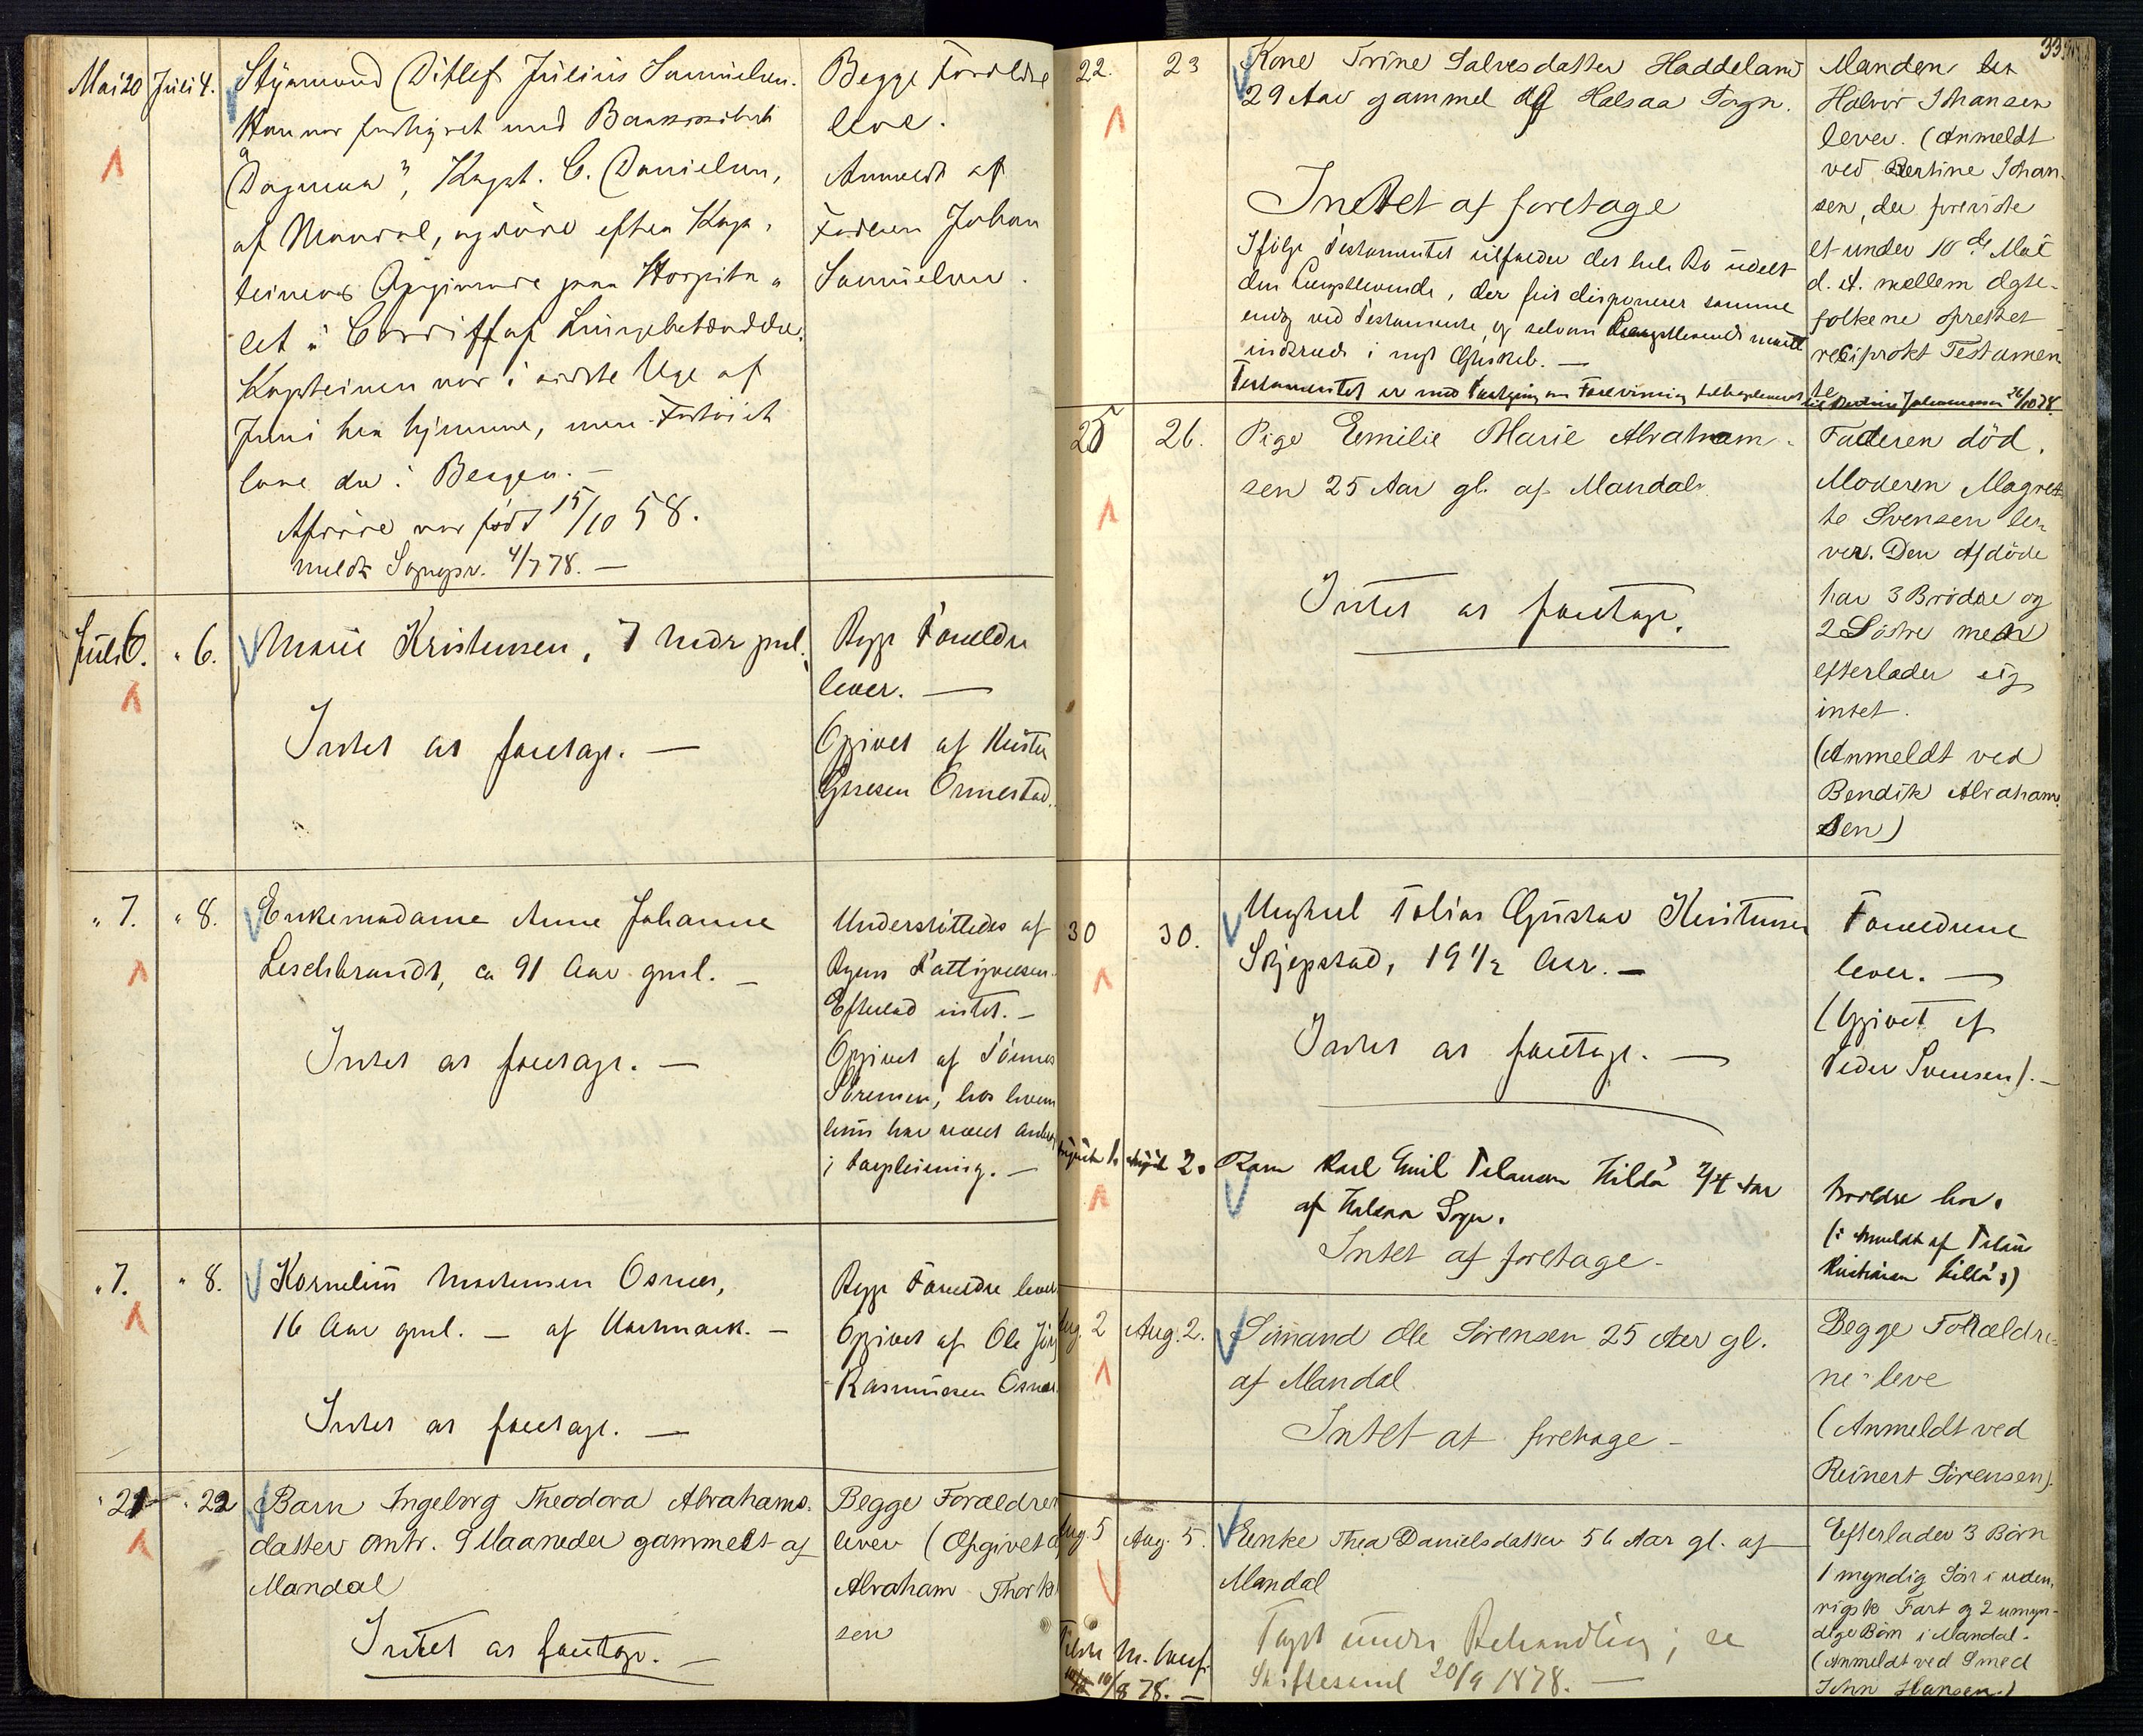 Mai 20 Juli 4. Styrmand Ditlef Julius Samuelsen. Begge Forældre
Han var forhyret med Barkskibet leve.
"Dagmar", Kapt. C. Danielsen, Anmeldt af
af Mandal, og døde efter Kap- Faderen Johan
teinens Opgivende paa Hospita- Samuelsen.
let i Cardiff af Lungebetændelse.
Kapteinen var i sidste Uge af
Juni her hjemme, men
lane du i Bergen. —
Afdøde var født 15/10 58.
meldt Sognepr. 4/7 78. —
Juli 6. " 6. Marie Kristensen, 7 Mdr gml. Begge Forældre
lever. —
Intet at foretage. — Opgivet af
Ormestad.
" 7. " 8. Enkemadame Anne Johanne Understøttedes af
Leschbrandt, ca 91 Aar gml. — Byens Fattigvæsen.
Efterlod intet. —
Intet at foretage. — Opgivet af Tønnes
Sørensen, hos hvem
hun har været
i Forpleining. —
" 7. " 8. Kornelius Mortensen Osnes, Begge Forældre lever
16 Aar gml. — af Halsmark. — Opgivet af Ole
Rasmussen Osnes.
Intet at foretage. —
" 21 " 22 Barn Ingeborg Theodora Abrahams- Begge Foræeldre
datter omtr. 9 Maaneder gammelt af lever (Opgivet af
Mandal Abraham
Intet at foretage. — sen
33
22. 23 Kone Trine Salvesdatter Haddeland Manden
29 Aar gammel af Halsaa Sogn. Halvor Johansen
lever. (Anmeldt
ved Bertine Johan-
Intet at foretage sen, der foreviste
Ifølge Testamentet tilfalder det hele Bo udelt et under 10de Mai
den Længstlevende, der frit disponerer samme d. A. mellem Ægte-
endog ved Testamente, og selvom Længstlevende maatte folkene oprettet
indtræde i nyt Ægteskab. — reciprokt Testamen
Testamentet er med Paategning om Forevisning tilbageleveret te
Bertine Johannesen 26/10 78.
25 26. Pige Emilie Marie Abraham- Faderen død.
sen 25 Aar gl. af Mandal. Moderen Magret-
te Svensen le-
ver. Den Afdøde
har 3 Brødre og
Intet at foretage. 2 Søstre men
efterlader sig
intet.
(Anmeldt ved
Bendik Abraham
sen)
30 30. Ungkarl Tobias Gustav Kristensen Forældrene
Skjepstad, 19 1/2 Aar. — lever. —
(Opgivet af
Intet at foretage. — Peder Svensen). —
August 1. August 2. Barn Karl Emil 2/4 Aar Forældre lever.
af Halsaa Sogn. (: Anmeldt af
Intet at foretage. — Kristiansen
Aug. 2 Aug. 2. Sømand Ole Sørensen 25 Aar gl. Begge Forældre-
af Mandal ne leve
Intet at foretage — (Anmeldt ved
Reinert Sørensen).
Aug. 5 Aug. 5. Enke Thea Danielsdatter 56 Aar gl. af Efterlader 3 Børn
Mandal 1 myndig Søn i uden-
rigsk Fart og 2 umyn-
Taget under Behandling; se dige Børn i Mandal.
Skiftesaml 20/9 1878. — (Anmeldt ved Smed
10/8 78. — John Hansen.)